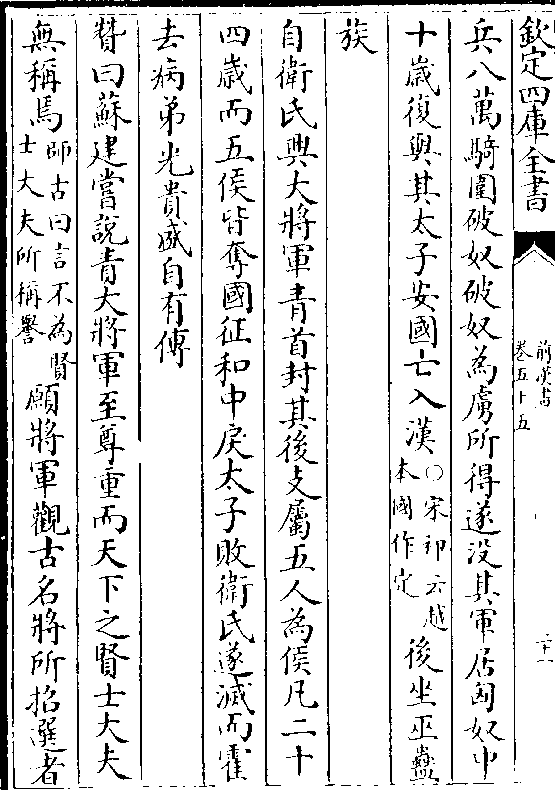 欽定四庫全書
前漢書
卷五十五
二十一
兵八萬騎圍破奴破奴為虜所得遂沒其軍居匈奴中
十歲復與其太子安國亡入漢○宋祁云越本國作定後坐巫蠱
族
自衛氏興大將軍青首封其後支屬五人為侯凡二十
四歲而五侯皆奪國征和中戾太子敗衛氏遂滅而霍
去病弟光貴盛自有傳
贊曰蘇建嘗說青大將軍至尊重而天下之賢士大夫
無稱焉師古曰言不為賢士大夫所稱譽願將軍觀古名將所招選者